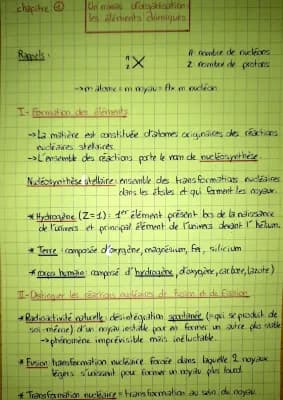 chapitre ①
Un niveau d'organisation :
les éléments chimiques
Rappels :
A
Z X
A: nombre de nucléons
Z: nombre de protons
→ m atome ≈ m noyau = A × m nucléon
I - Formation des éléments
→ La matière est constituée d'atomes originaires des réactions
nucléaires stellaires.
→ L'ensemble des réactions porte le nom de nucléosynthèse.
Nucléosynthèse stellaire : ensemble des transformations nucléaires
dans les étoiles et qui forment les noyaux.
* Hydrogène (Z=1) : 1er élément présent lors de la naissance
de l'univers et principal élément de l'univers devant l'hélium.
* Terre : composée d'oxygène, magnésium, Fer, silicium
* corps humain : composé d'hydrogène, d'oxygène, carbone, (azote)
II - Distinguer les réactions nucléaires de fusion et de fission
* Radioactivité naturelle : désintégration spontanée (= qui se produit de
soi-même) d'un noyau instable pour en former un autre plus stable
→ phénomène imprévisible mais inéluctable.
* Fusion : transformation nucléaire forcée dans laquelle 2 noyaux
légers s'unissent pour former un noyau plus lourd.
* Transformation nucléaire = transformation au sein du noyau